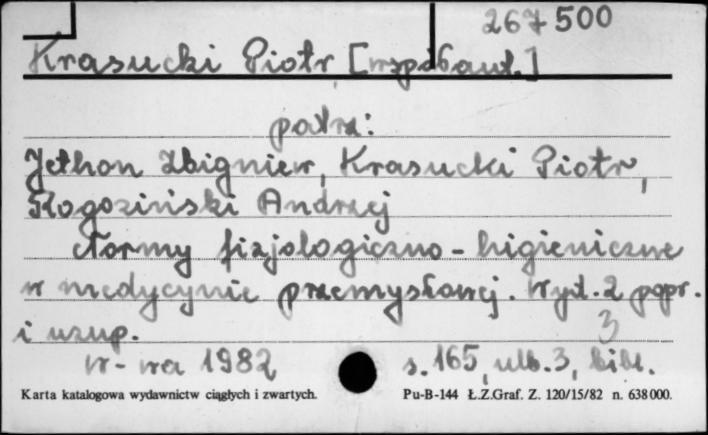 267500
Krasucki Piotr [współaut.]
patrz:
Jethon Zbigniew, Krasucki Piotr,
Rogoziński Andrzej
Normy fizjologiczno-higieniczne
w medycynie przemysłowej. Wyd. 2 popr.
i uzup.
3
W-wa 1982 s. 165, nlb. 3, bibl.
Karta katalogowa wydawnictw ciągłych i zwartych. Pu-B-144 Ł.Z.Graf. Z. 120/15/82 n. 638000.